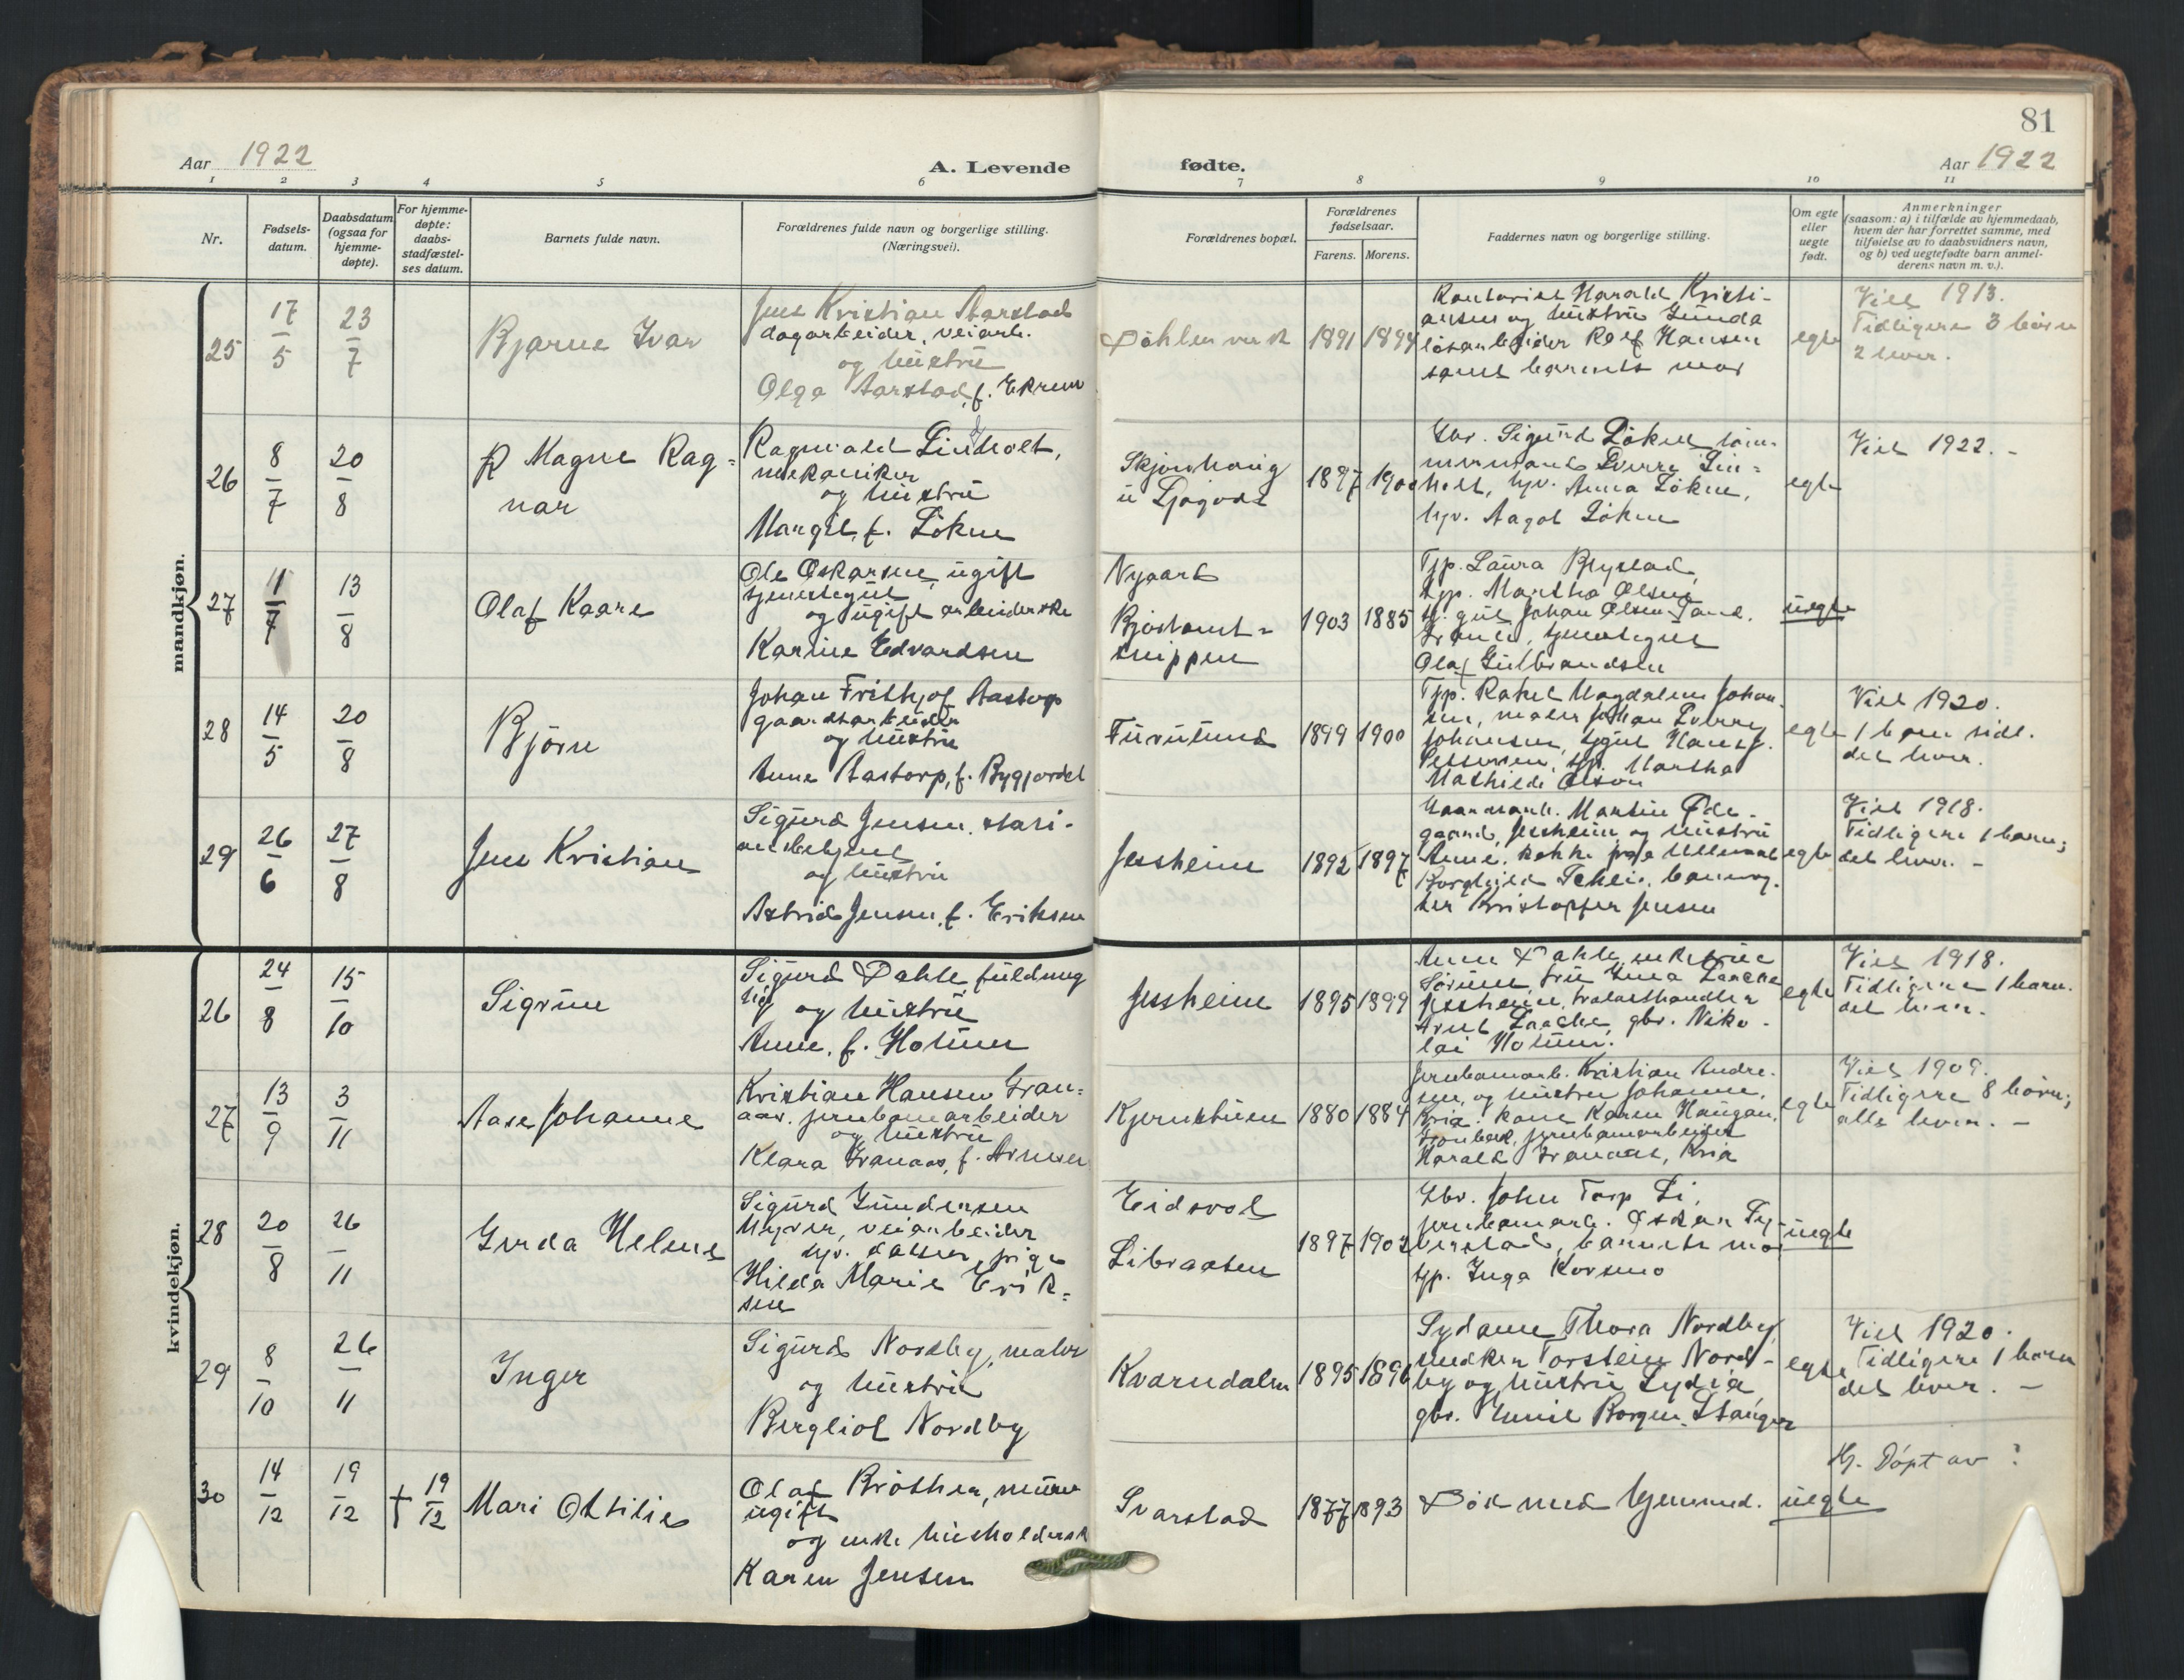 81
Aar 1922
A. Levende
fødte.
Aar 1922
1 2 3 4 5 6 7 8 9 10 11
Nr.
Fødsels-
datum.
Daabsdatum
(ogsaa for
hjemme-
døpte).
For hjemme-
døpte:
daabs-
stadfæstel-
ses datum.
Barnets fulde navn.
Forældrenes fulde navn og borgerlige stilling.
(Næringsvei).
Forældrenes bopæl.
Forældrenes
fødselsaar.
Farens. Morens.
Faddernes navn og borgerlige stilling.
Om egte
eller
uegte
født.
Anmerkninger
(saasom: a) i tilfælde av hjemmedaab,
hvem der har forrettet samme, med
tilføielse av to daabsvidners navn,
og b) ved uegtefødte barn anmel-
derens navn m. v.).
mandkjøn.
25
17/5
23/7
Bjarne Ivar
Jens Kristian Aarstad
dagarbeider, veiarb.
og hustru
Olga Aarstad, f. Ekren
1891 1894
Harald Kristi-
ansen og hustru Gunda
Rolf Hansen
samt barnets mor
egte
Viet 1913.
Tidligere 3 børn
2 lever.
26
8/7
20/8
Magne Rag=
nar
Ragnvald Lindholt,
mekaniker
og hustru
Margit, f. Løkne
1897 1900
Gbr. Sigurd Løkne, tøm-
mermand Sverre Lin=
holt, hjv. Anna Løkne,
hjv. Aagot Løkne
egte
Viet 1922. -
27
11/7
13/8
Olaf Kaare
Ole Oskarsen, ugift
tjenestegut
og ugift arbeiderske
Karine Edvardsen
Nygard
1903 1885
Tjp. Laura
tjp. Martha Olsen,
tj. gut Johan Olsen
tjenestegut
Olaf Gulbrandsen
uegte
28
14/5
20/8
Bjørn
Johan Frithjof Aastorp
gaardsarbeider
og hustru
Anne Aastorp, f. Bygjordet
Furulund
1899 1900
Tjp. Rakel Magdalene Johan
sen, maler Johan Sverre
Johansen, tjgut Hans J.
Pettersen, tjp. Martha
Mathilde Olson
egte
Viet 1920.
1 barn tidl.
det lever.
29
26/6
27/8
Jens Kristian
Sigurd Jensen, stasi-
onsbetjent
og hustru
Astrid Jensen, f. Eriksen
Jessheim
1892 1897
Martin Øde-
gaard, Jessheim og hustru
Anne,
Borghild
Kristoffer Jensen
egte
Viet 1918.
Tidligere 1 barn;
det lever. -
kvindekjøn.
26
24/8
15/10
Sigrun
Sigurd Dahle, fuldmæg
tig
og hustru
Anne, f. Holum
Jessheim
1895 1899
Anne Dahle, enkefrue
Sørum, fru Inga Laache
Jessheim, trælasthandler
Arne Laache, gbr. Niko-
lai Holum.
egte
Viet 1918.
Tidligere 1 barn.
det lever.
27
13/9
3/11
Aase Johanne
Kristian Hansen Gran=
aas, jernbanearbeider
og hustru
Klara Granaas, f. Arnesen
Kjernstuen
1880 1884
Jernbanearb. Kristian Andre-
sen, og hustru Johanne,
Kria. kone Karen Haugan,
jernbanearbeider
Harald Granaas, Kria
egte
Viet 1909.
Tidligere 8 børn;
alle lever. -
28
20/8
26/11
Gerda Helene
Sigurd Gundersen
Myrer, veiarbeider
hjv. datter, pige
Hilda Marie Erik=
sen
Eidsvol
Libraaten
1897 1902
Gbr. John Torp Li,
jernbanearb. Oskar Ty-
verstad, barnets mor
tjp. Inga Korsmo
uegte
29
8/10
26/11
Inger
Sigurd Nordby, maler
og hustru
Bergliot Nordby
Kværndalen
1895 1896
Sydame Thora Nordby,
snedker Torstein Nord-
by og hustru Lydia
gbr. Emil Borgen, Stanger
egte
Viet 1920.
Tidligere 1 barn
det lever. -
30
14/12
19/12
† 19/12
Mari Ottilie
Olaf Bråthen, murer
ugift
og enke husholderske
Karen Jensen
Svarstad
1877 1893
Død med hjemmed.
uegte
Hj. Døpt av ?